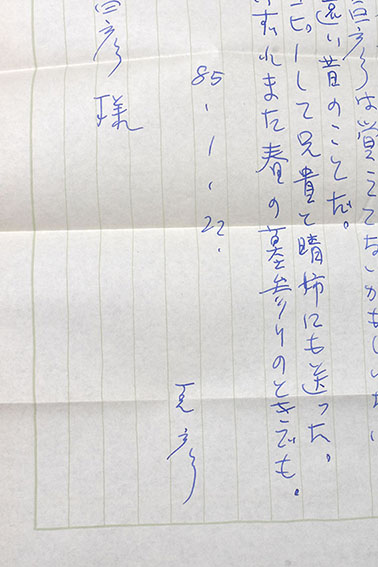 彦は覚えてないかもしれない
遠い昔のことだ。
ピーして兄貴と晴姉にも送った。
いずれまた春の墓参りのときでも。
85・1・22・
彦
彦様